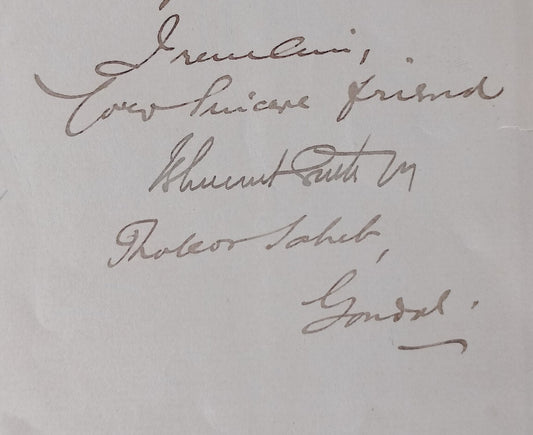 I remain,
Your Sincere friend
Bhagvat Sinh
Thakor Saheb,
Gondal.